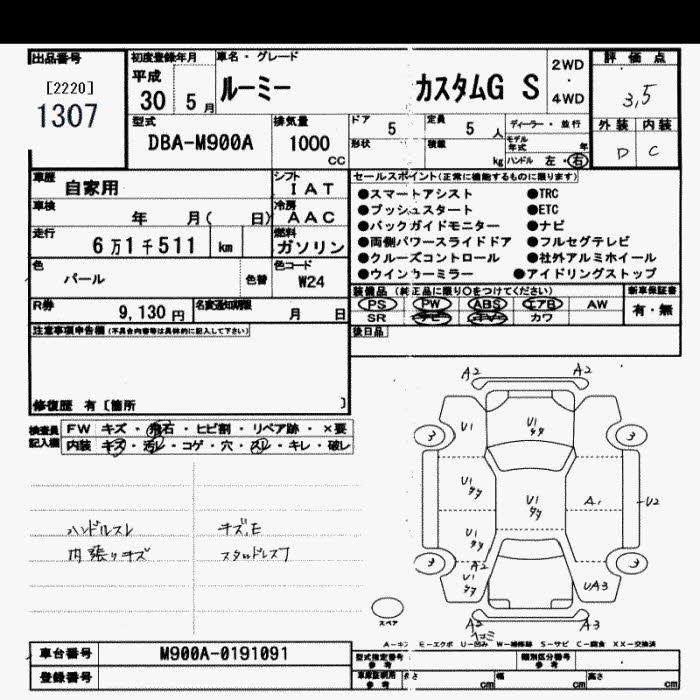 出品番号 初度登録年月 車名・グレード 評価点
[2220] 平成 ルーミー カスタムG S 2WD・4WD 3,5
1307 30 5月
型式 排気量 ドア 定員 ディーラー・並行 外装 内装
DBA-M900A 1000 CC 5 5人 モデル年式 年 D C
形状 積載 kg ハンドル 左・右
車歴 自家用 シフト IAT セールスポイント(正常に機能するものに限ります)
車検 年 月( 日) 冷房 AAC
走行 6万1千511 km 燃料 ガソリン
●スマートアシスト ●TRC
●プッシュスタート ●ETC
●バックガイドモニター ●ナビ
●両側パワースライドドア ●フルセグテレビ
●クルーズコントロール ●社外アルミホイール
●ウインカーミラー ●アイドリングストップ
色 パール 色替 色コード W24
R券 9,130円 名変通知期限 月 日
装備品(純正品に限り○をつけてください) 新車保証書
PS PW ABS エアB AW 有・無
SR ナビ カワ
注意事項申告欄(不具合内容等は具体的に記入して下さい) 後日品
修復歴 有[箇所 ]
検査員記入欄 FW キズ・飛石・ヒビ割・リペア跡・×要
内装 キズ・汚レ・コゲ・穴・スレ・キレ・破レ
ハンドルスレ キズ,E
内張りキズ スタッドレス7
A2 A2
U1 U1
3 3
U1 U1 A1 U2
U1
A2
U1 UA3
3 3
A2 A3
スペア
A-キズ E-エクボ U-凹み W-補修跡 S-サビ C-腐食 XX-交換済
車台番号 M900A-0191091 型式指定番号 参考 類別区分番号 参考
登録番号 車庫証明用 参考 長さ cm 幅 cm 高さ cm